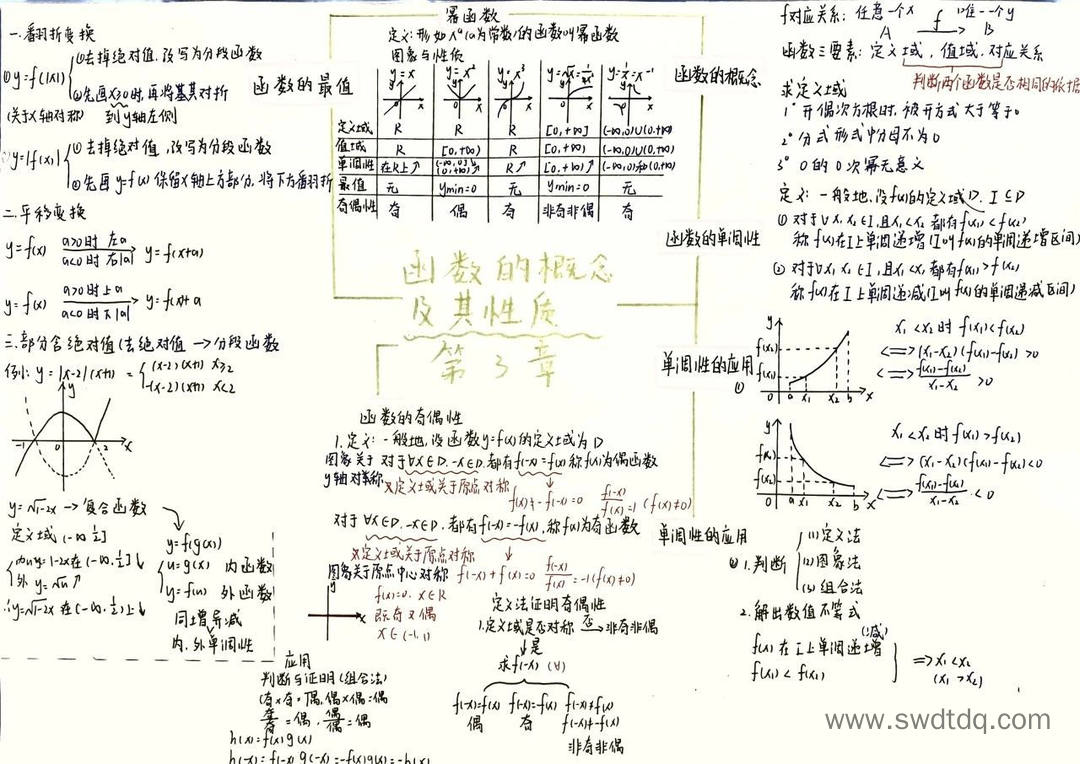 函数的概念
及其性质
第3章
一.翻折变换
①y=f(|x|)
①去掉绝对值,改写为分段函数
②先画x≥0时,再将其对折
到y轴左侧
(关于x轴对称)
y=|f(x)|
①去掉绝对值,改写为分段函数
②先画y=f(x)保留x轴上方部分,将下方翻折
二.平移变换
y=f(x) a>0时 左a a<0时 右|a| y=f(x+a)
y=f(x) a>0时上a a<0时下|a| y=f(x)+a
三.部分含绝对值(去绝对值→分段函数
例: y=|x-2|(x+1) = { (x-2)(x+1) x≥2
-(x-2)(x+1) x<2
y
-1 0 2 x
y=√1-2x→复合函数
定义域(-∞,½]
内u=1-2x在(-∞,½]↓
外y=√u↑
∴y=√1-2x在(-∞,½)上↓
y=f(g(x))
u=g(x) 内函数
y=f(u) 外函数
同增异减
内.外单调性
函数的最值
幂函数
定义:形如xᵃ(a为常数)的函数叫幂函数
图象与性质
y=x y=x² y=x³ y=√x=x^½ y=1/x=x⁻¹
定义域 R R R [0,+∞] (-∞,0)∪(0,+∞)
值域 R [0,+∞) R [0,+∞) (-∞,0)∪(0,+∞)
单调性 在R上↑ (-∞,0]↓ [0,+∞)↑ R↑ [0,+∞)↑ (-∞,0)和(0,+∞)
最值 无 ymin=0 无 ymin=0 无
奇偶性 奇 偶 奇 非奇非偶 奇
函数的概念
f对应关系:任意一个x f 唯一一个y
A B
函数三要素:定义域,值域,对应关系
判断两个函数是否相同的依据
求定义域
1°开偶次方根时,被开方式大于等于0
2°分式形式中分母不为0
3°0的0次幂无意义
函数的单调性
定义:一般地,设f(x)的定义域D,I⊆D
①对于∀x₁,x₂∈I,且x₁<x₂都有f(x₁)<f(x₂)
称f(x)在I上单调递增(I叫f(x)的单调递增区间)
②对于∀x₁,x₂∈I,且x₁<x₂都有f(x₁)>f(x₂)
称f(x)在I上单调递减(I叫f(x)的单调递减区间)
单调性的应用
①
y
f(x₂)
f(x₁)
0 a x₁ x₂ b x
x₁<x₂时f(x₁)<f(x₂)
⟺(x₁-x₂)(f(x₁)-f(x₂))>0
⟺f(x₁)-f(x₂)/x₁-x₂>0
y
f(x₁)
f(x₂)
0 a x₁ x₂ b x
x₁<x₂时f(x₁)>f(x₂)
⟺(x₁-x₂)(f(x₁)-f(x₂))<0
⟺f(x₁)-f(x₂)/x₁-x₂<0
单调性的应用
②1.判断
(1)定义法
(2)图象法
(3)组合法
2.解出数值不等式
f(x)在I上单调递增(减)
f(x₁)<f(x₂)
⇒x₁<x₂
(x₁>x₂)
函数的奇偶性
1.定义:一般地,设函数y=f(x)的定义域为D
图象关于 对于∀x∈D.-x∈D.都有f(-x)=f(x)称f(x)为偶函数
y轴对称
※定义域关于原点对称
f(x)+-f(-x)=0 f(-x)/f(x)=1(f(x)≠0)
对于∀x∈D.-x∈D.都有f(-x)=-f(x),称f(x)为奇函数
※定义域关于原点对称
图象关于原点中心对称 f(-x)+f(x)=0 f(-x)/f(x)=-1(f(x)≠0)
y
x
f(x)=0.x∈R
既奇又偶
x∈(-1,1)
定义法证明奇偶性
1.定义域是否对称 否→非奇非偶
↓是
求f(-x)(∀)
f(-x)=f(x) f(-x)=-f(x) f(-x)≠f(x)
偶 奇 f(-x)≠-f(x)
非奇非偶
应用
判断与证明(组合法)
(奇×奇=偶,偶×偶=偶
奇/奇=偶,偶/偶=偶
h(x)=f(x)g(x)
h(-x)=f(-x)g(-x)=-f(x)g(x)=-h(x)
www.swdtdq.com